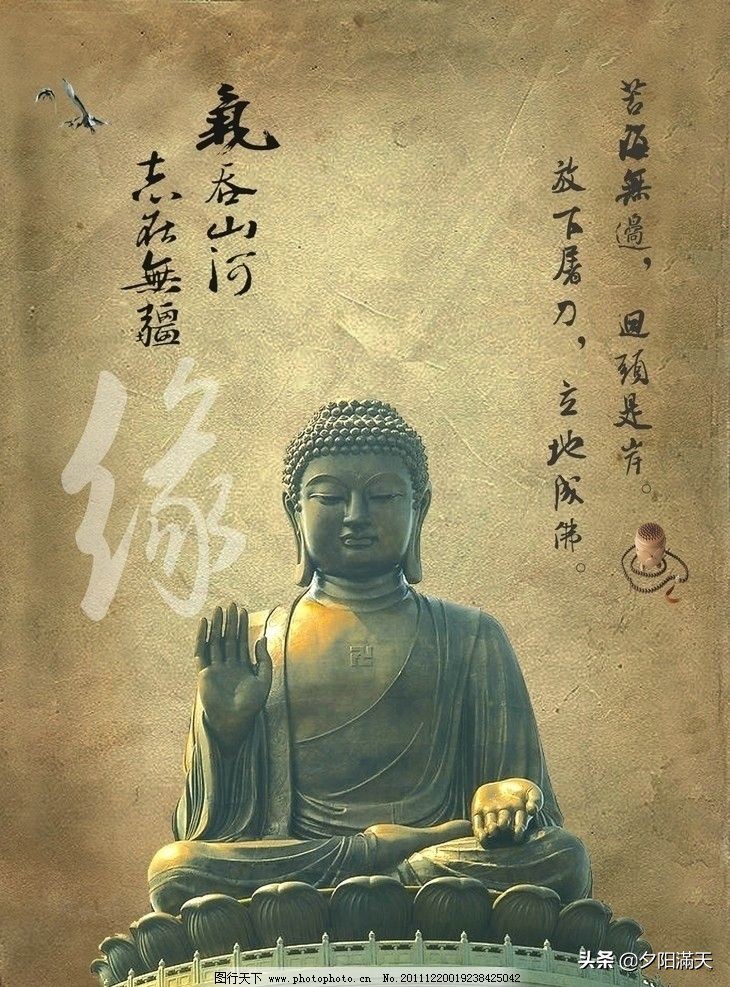 苦海無邊，回頭是岸。
放下屠刀，立地成佛。
氣吞山河
志在無疆
缘
头条 @夕阳滿天
图行天下 www.photophoto.cn No.20111220019238425042